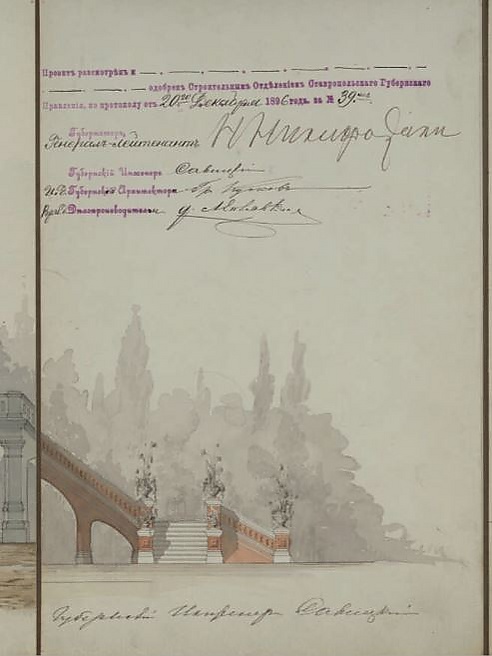 Проектъ разсмотрѣнъ и
одобренъ Строительнымъ Отдѣленіемъ Ставропольскаго Губернскаго
Правленія, по протоколу отъ 20го Декабря 1896 года, за № 39.
Губернаторъ,
Генералъ-лейтенантъ Н Никифораки
Губернскій Инженеръ Савицкій
И. д. Губернскаго Архитектора Гр. Кусковъ
Дѣлопроизводитель
Губернскій Инженеръ Савицкій